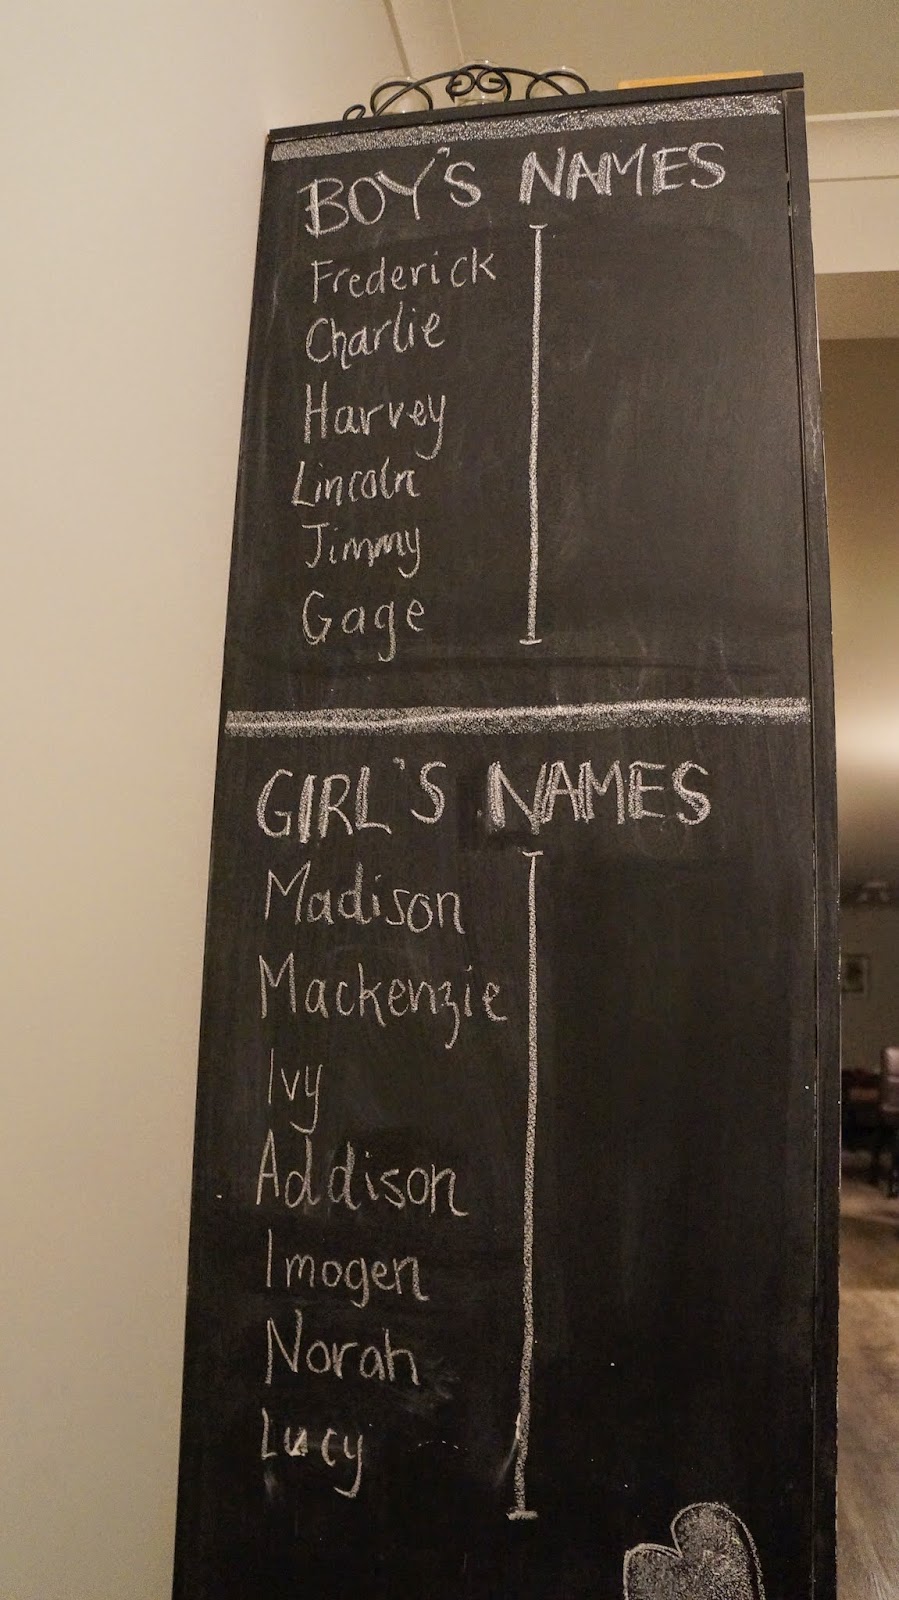 BOY'S NAMES
Frederick
Charlie
Harvey
Lincoln
Jimmy
Gage
GIRL'S NAMES
Madison
Mackenzie
Ivy
Addison
Imogen
Norah
Lucy